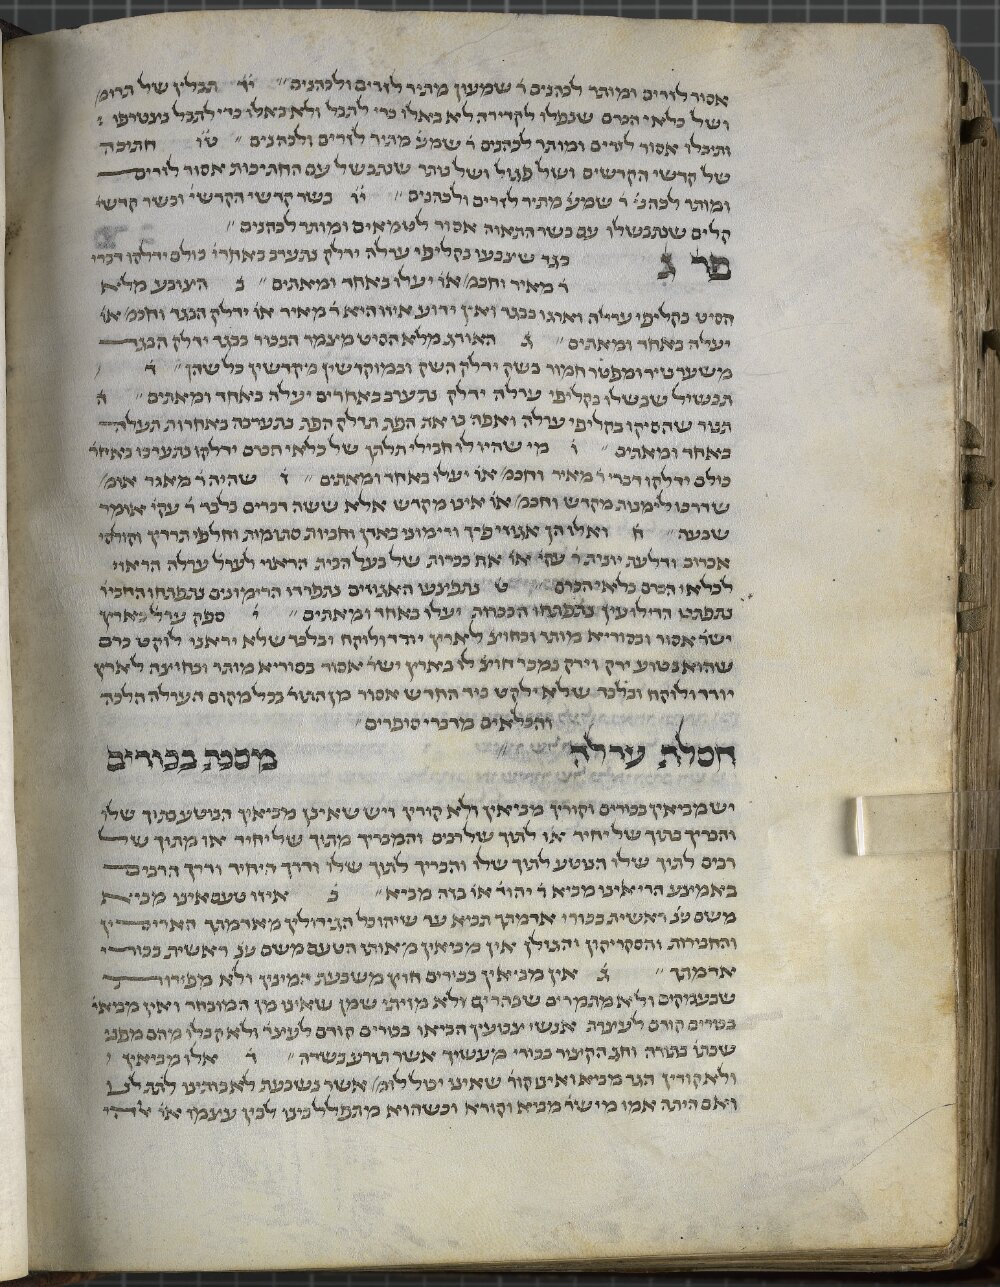 אסור לזרים ומותר לכהנים ר שמעון מתיר לזרים ולכהנים יד תבלין של תרומ
ושל כלאי הכרם שנפלו לקדירה לא באלו כדי לתבל ולא באלו כדי לתבל נצטרפו
ותיבלו אסור לזרים ומותר לכהנים ר שמע מתיר לזרים ולכהנים טו חתיכה
של קדשי הקדשים ושל פגול ושל נותר שנתבשל עם החתיכות אסור לזרים
ומותר לכהנ ר שמע מתיר לזרים ולכהנים יו בשר קדשי הקדשי ובשר קדשי
קלים שנתבשלו עם בשר התאוה אסור לטמאים ומותר לכהנים
פר ג בגד שצבעו בקליפי ערלה ידלק נתערב באחרי כולם ידלקו דברי
ר מאיר וחכמ או יעלו באחד ומאתים ב הצובע מלוא
הסיט בקליפי ערלה וארגו בבגד ואין ידוע איזו היא ר מאיר או ידלק הבגד וחכמ או
יעלה באחד ומאתים ג האורג מלא הסיט מצמר הבכור בבגד ידלק הבגד
משער נזיר ומפטר חמור בשק ידלק השק ובמוקדשין מקדשין כל שהן ד
תבשיל שבשלו בקליפי ערלה ידלק נתערב באחרים יעלה באחד ומאתים ה
תנור שהסיקו בקליפי ערלה ואפה בו את הפת תדלק הפת נתערבה באחרות תעלה
באחד ומאתים ו מי שהיו לו חבילי תלתן של כלאי הכרם ידלקו נתערבו באחר
כולם ידלקו דברי ר מאיר וחכמ או יעלו באחד ומאתים ז שהיה ר מאגר אומ
שדרכו לימנות מקדש וחכמ או אינו מקדש אלא ששה דברים בלבד ר עקי אומר
שבעה ח ואלו הן אגוזי פרך ורימוני באדן וחביות סתומות וחלפי תרדין וקולסי
אכרוב ודלעת יונית ר עקי או אף ככרות של בעל הבית הראוי לערל ערלה הראוי
לכלאי הכרם כלאי הכרם ט נתפצעו האגוזים נתפרדו הרימונים נתפתחו החביו
נתפגמו הדילועין נתפתחו הככרות יעלו באחד ומאתים י ספק ערל בארץ
ישר אסור ובסוריא מותר ובחוצ לארץ יורד ולוקח ובלבד שלא יראנו לוקט כרם
שהוא נטוע ירק וירק נמכר חוצ לו בארץ ישר אסור בסוריא מותר ובחוצה לארץ
יורד ולוקח ובלבד שלא ילקט ביד החדש אסור מן התור בכל מקום הערלה הלכה
והכלאים מדברי סופרים
חסלת ערלה מסכת בכורים
יש מביאין בכורים וקורין מביאין ולא קורין ויש שאינן מביאין הנוטע בתוך שלו
והבריך בתוך של יחיד או לתוך של רבים והמבריך מתוך של יחיד או מתוך של
רבים לתוך שלו הנוטע לתוך שלו והבריך לתוך שלו ודרך היחיד ודרך הרבים
באמיצע הרי אינו מביא ר יהוד או בזה מביא ב איזו טעם אינו מביא
משם שנ ראשית בכורי אדמתך תביא עד שיהו כל הגידולין מאדמתך האריסין
והחכירות והסקריקון והגזלן אין מביאין מאותו הטעם משם שנ ראשית בכורי
אדמתך ג אין מביאין בכורים חוץ משבעת המינין ולא מפירות
שבעמקים ולא מתמרים שבהרים ולא מזיתי שמן שאינו מן המובחר ואין מביאי
בכורים קודם לעצרת אנשי צבועין הביאו בכורים קודם לעצר ולא קבלו מהם מפני
שכתו בתורה וחג הקציר בכורי מעשיך אשר תזרע בשדה ד אלו מביאין
ולא קורין הגר מביא ואינו קור שאינו יכול לומ אשר נשבעת לאבותינו לתת לנו
ואם היתה אמו מישר מביא וקורא וכשהוא מתפלל בינו לבין עצמו או אלהי